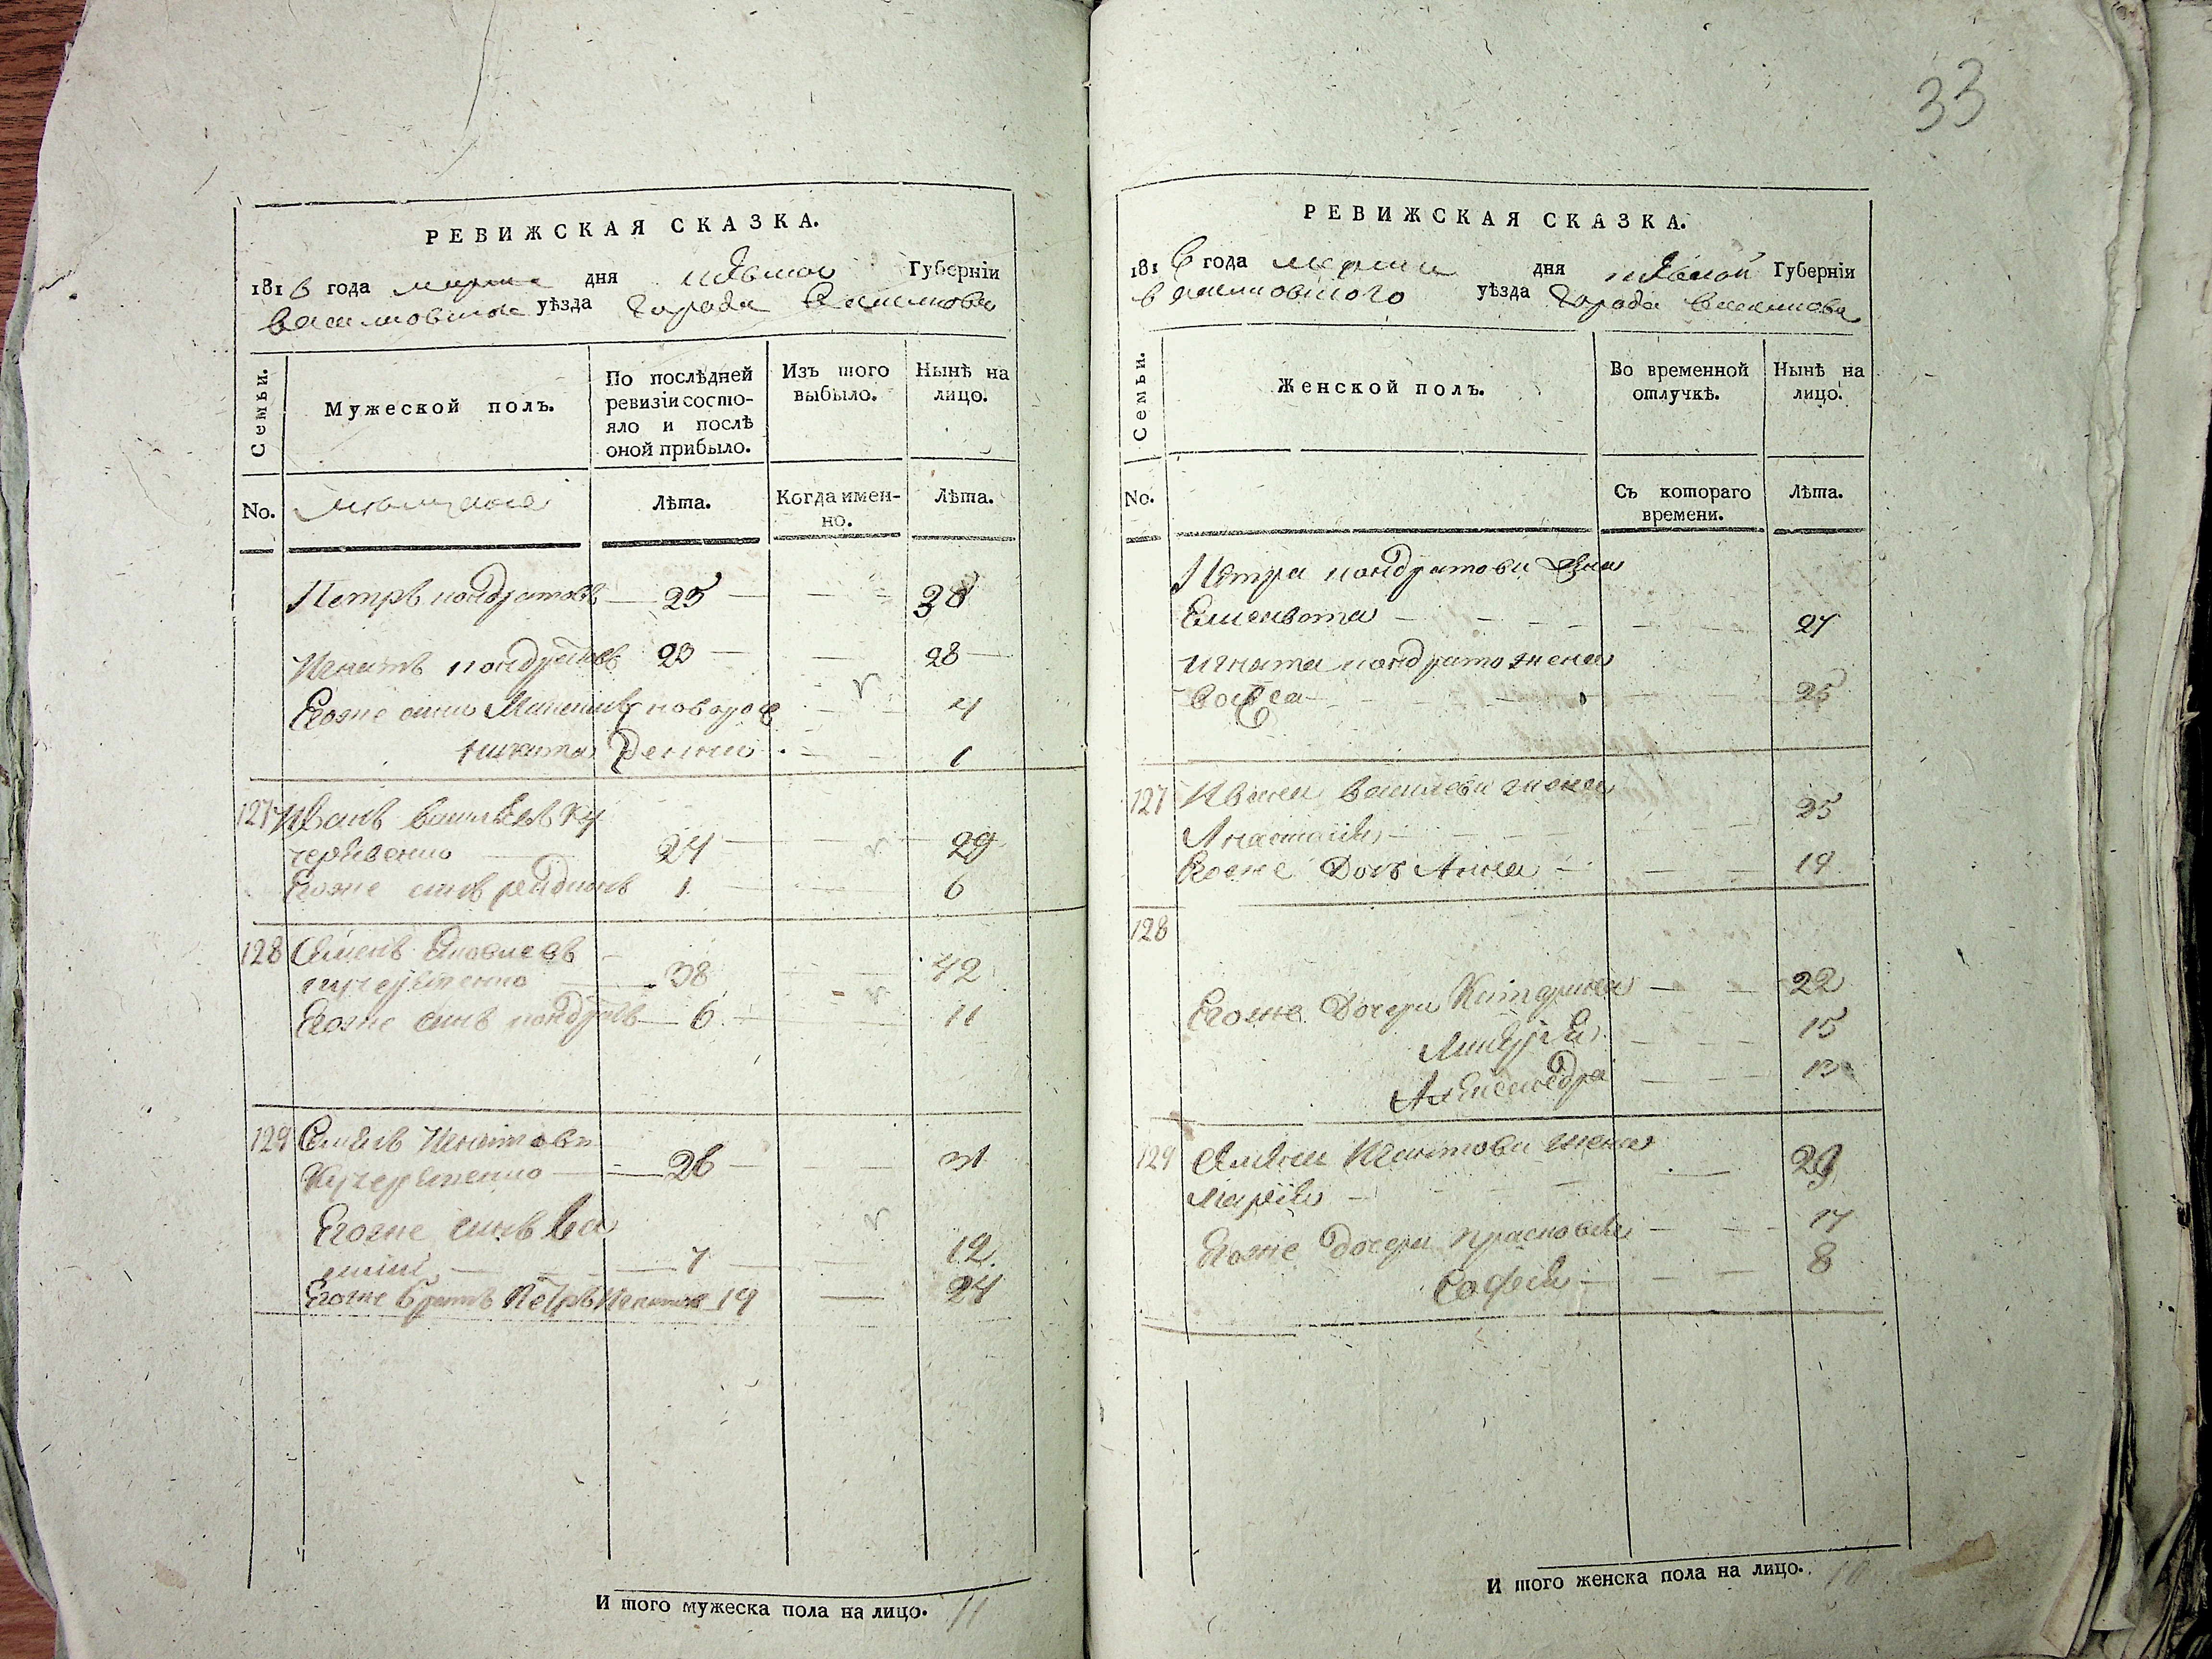 33
РЕВИЖСКАЯ СКАЗКА.
1816 года марта дня киевской Губерніи
василковского уѣзда города Василкова
Семьи.
Мужеской полъ.
По послѣдней
ревизіи состо-
яло и послѣ
оной прибыло.
Изъ того
выбыло.
Нынѣ на
лицо.
No.
Лѣта.
Когда имен-
но.
Лѣта.
Петръ кондратовъ 25 — — 30
Игнатъ кондратовъ 23 — — 28
Егоже сини Максимъ новорож — 4
никита денни — 1
127 Иванъ василѣевъ Ку
черѣвенко 24 — — 29
Егоже синъ родионъ 1 — — 6
128 Семенъ Яковлевъ
кучерѣвенко 38 — — 42
Егоже синъ кондратъ 6 — — 11
129 Семенъ Игнатовъ
Кучерѣвенко 26 — — 31
Егоже синъ Ва
силий 7 — — 12
Егоже братъ Петръ Игнатов 19 — 24
И того мужеска пола на лицо. 11
РЕВИЖСКАЯ СКАЗКА.
1816 года марта дня киевской Губерніи
василковского уѣзда города василкова
Семьи.
Женской полъ.
Во временной
отлучкѣ.
Нынѣ на
лицо.
No.
Съ котораго
времени.
Лѣта.
Петра кондратова жена
Елисавета — — 27
игната кондрато жена
— — 25
127 Ивана василева жена
Анастасия — — 25
Егоже дочъ Анна — — 14
128
Егоже дочери Катерина — — 22
— — 15
Александра — — 13
129 Семена Игнатова жена
Мария — — 29
Егоже дочери прасковея — — 17
Софея — — 8
И того женска пола на лицо. 10